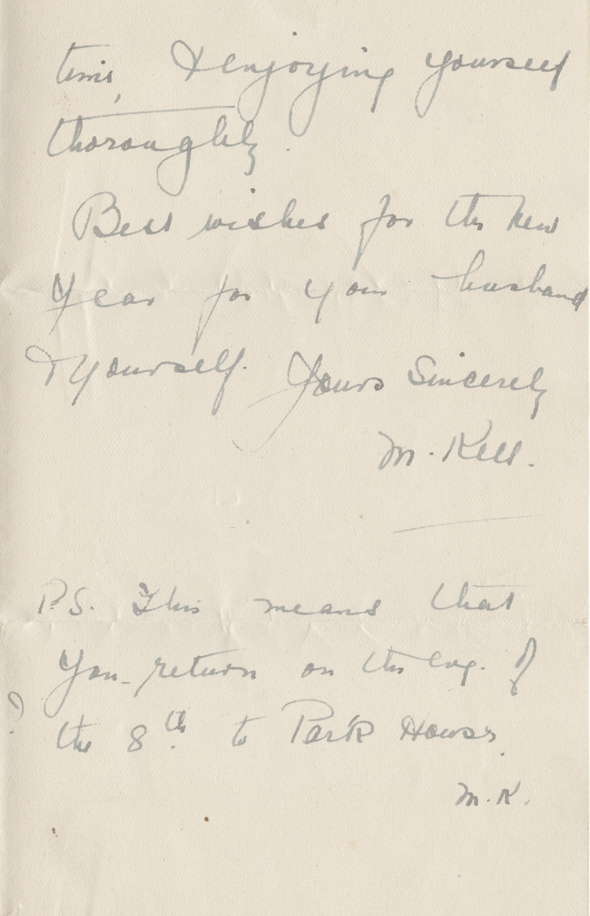 time, & enjoying yourself
thoroughly.
Best wishes for the new
Year for your husband
& yourself. Yours Sincerely
M. Kell.
P.S. This means that
you return on the evg. of
the 8th to Park House.
M.K.